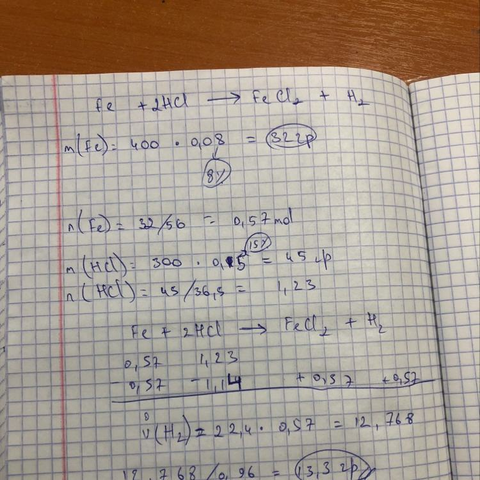 Fe + 2HCl → FeCl₂ + H₂
m(Fe) = 400 · 0,08 = 32 гр
8%
n(Fe) = 32/56 = 0,57 mol
15%
m(HCl) = 300 · 0,15 = 45 гр
n(HCl) = 45/36,5 = 1,23
Fe + 2HCl → FeCl₂ + H₂
0,57 1,23
-0,57 -1,14 +0,57 +0,57
0
V(H₂) = 22,4 · 0,57 = 12,768
12,768/0,96 = 13,3 гр